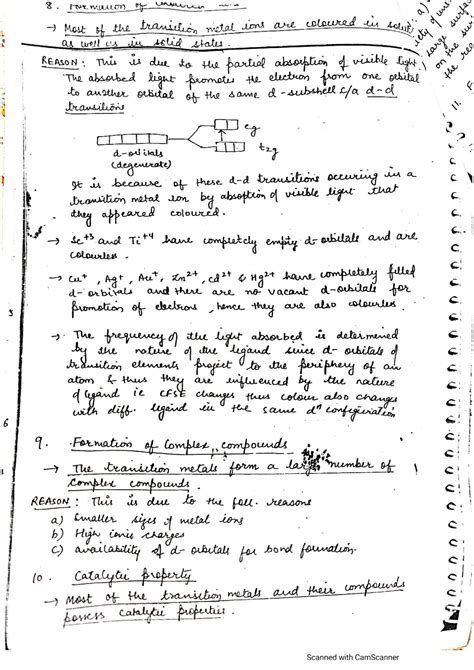 8. Formation of
→ Most of the transition metal ions are coloured in solut
as well as in solid states.
REASON: This is due to the partial absorption of visible light
The absorbed light promotes the electron from one orbital
to another orbital of the same d-subshell c/a d-d
transitions
eg
t2g
d-orbitals
(degenerate)
It is because of these d-d transitions occuring in a
transition metal ion by absoption of visible light that
they appeared coloured.
→ Sc+3 and Ti+4 have completely empty d-orbitals and are
colourless.
→ Cu+, Ag+, Au+, Zn2+, Cd2+ & Hg2+ have completely filled
d-orbitals and there are no vacant d-orbitals for
promotion of electrons, hence they are also colourless.
→ The frequency of the light absorbed is determined
by the nature of the ligand since d-orbitals of
transition elements project to the periphery of an
atom & thus they are influenced by the nature
of ligand ie CFSE changes thus colour also changes
with diff. ligand in the same dn configuration
9. Formation of Complex compounds
→ The transition metals form a large number of
complex compounds.
REASON: This is due to the foll. reasons
a) Smaller sizes of metal ions
b) High ionic charges
c) availability of d-orbitals for bond formation.
10. Catalytic property
→ Most of the transition metals and their compounds
possess catalytic properties.
a)
large surface
on the
11.
6
Scanned with CamScanner